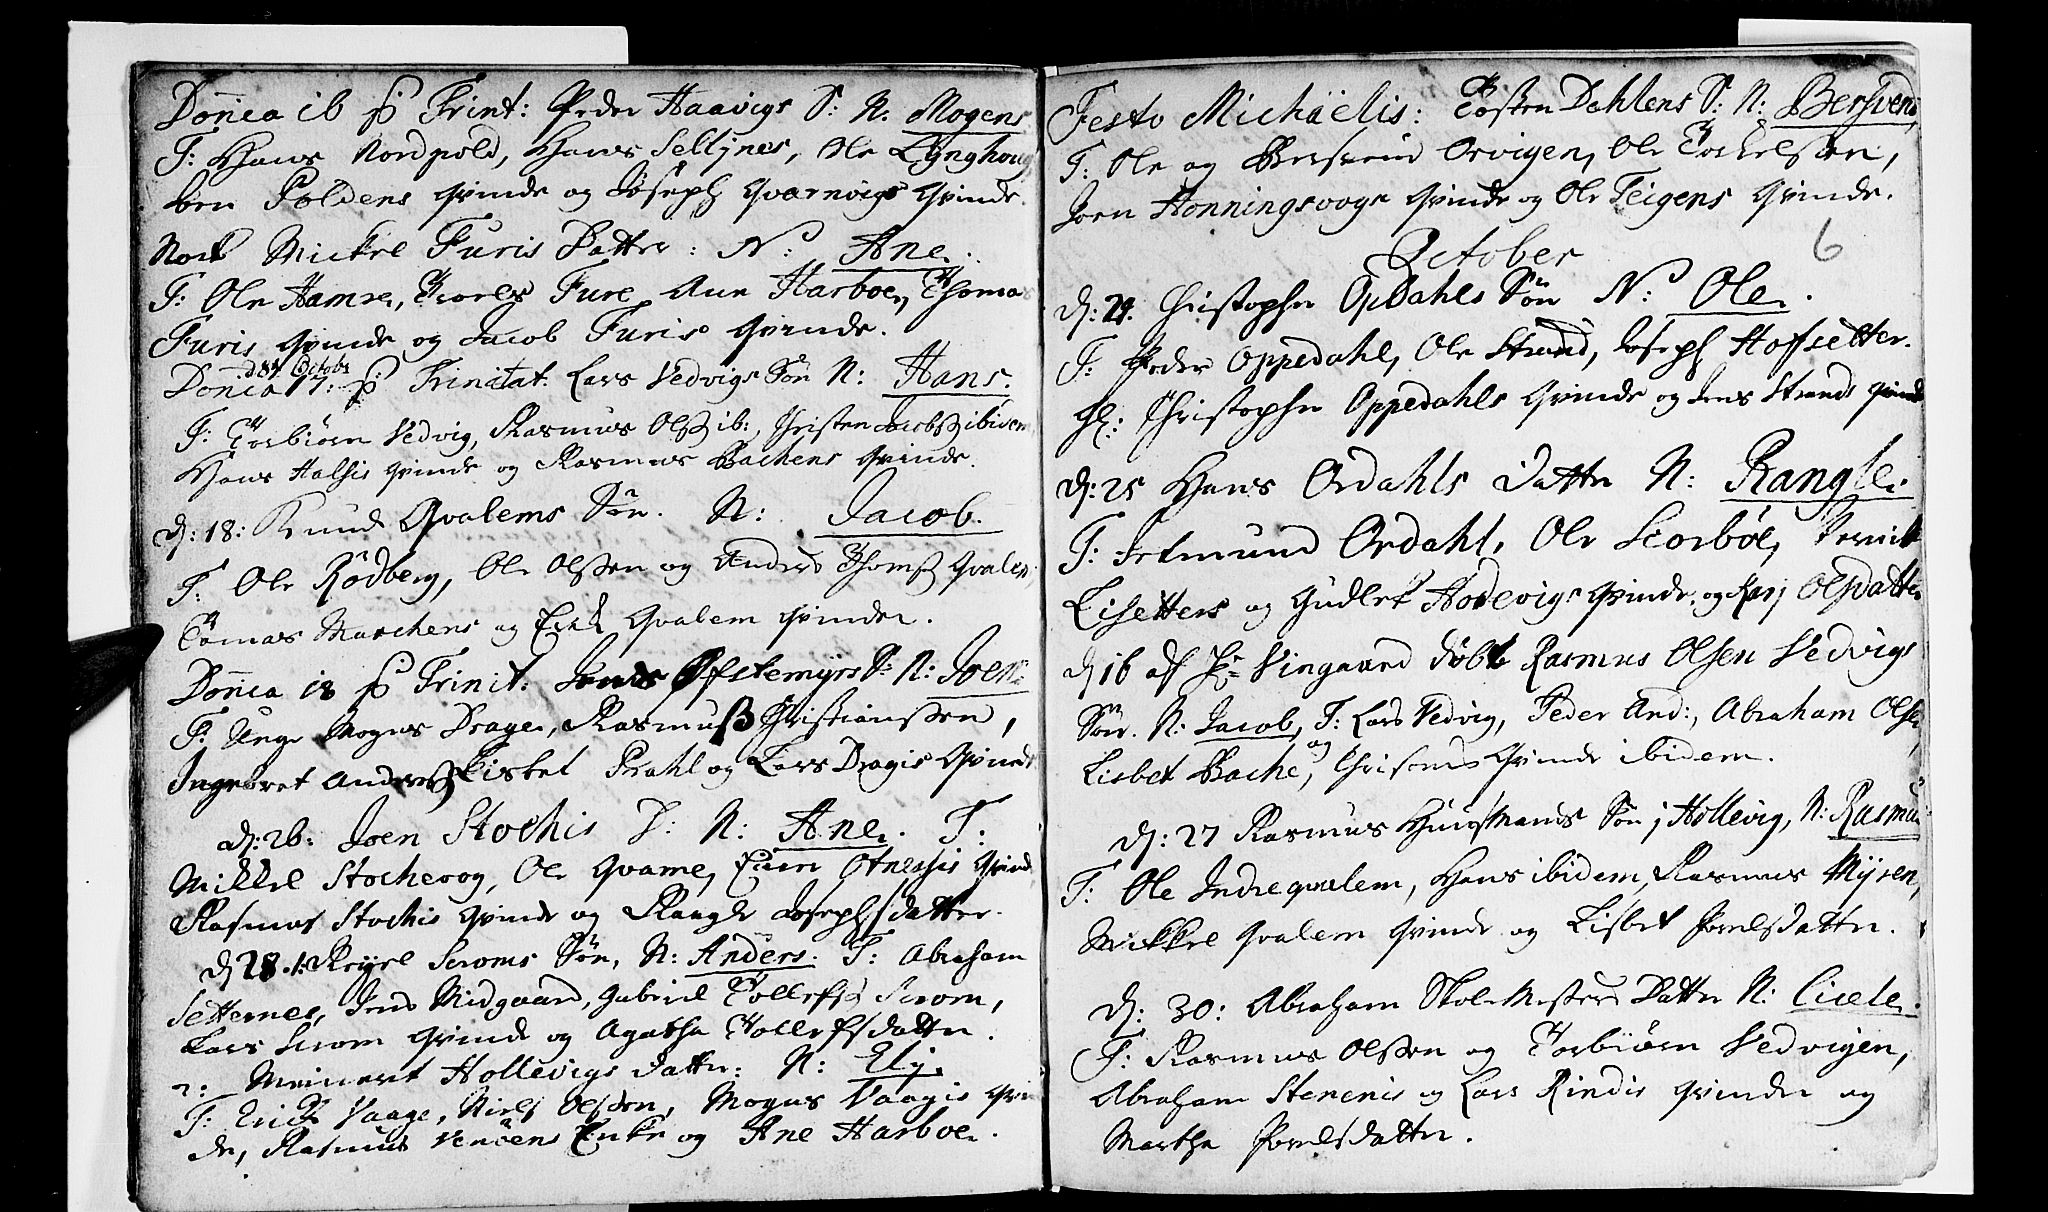 Donica 16 p Trint: Peder Haavigs S: N. Mogens
F: Hans Nordpold, Hans Sellnes, Ole Lynghoug
ben Poldens Qvinde og Joseph Qvarnvigs Qvinde.
Nock Mickel Furis Datter: N: Ane.
F: Ole Hamre, Fure, Ane Harboe, Thomas
Furis Qvinde og Jacob Furis Qvinde.
Donica 17: p Trinitat: Lars Vedvigs Søn N: Hans.
F: Torbiørn Vedvig, Rasmus Olsß ib:, Christen Jacobsß ibidem
Hans Halsis Qvinde og Rasmus Bachens Qvinde.
D: 18: Knud Qvalems Søn. N: Jacob.
F: Ole Rødberg, Ole Olssen og Anders Thomß Qvalem
Tomas Marchens og Qvalem Qvinder.
Donica 18 p Trinit: Øfstemyrs S: N: Joen
F: Unge Mogns Drage, Rasmuß Christianssen,
Ingebret Andersß Lisbet Prahl og Lars Dragis Qvinde
D: 26: Joen Stochis D: N: Ane. F:
Mikkel Stochevog, Ole Qvame, Otnessis Qvinde
Rasmus Stochis Qvinde og Rangle Josephsdatter.
D 28. Scroms Søn, N: Anders. F: Abraham
Setternes, Jens Midgaard, Gabriel Tollefsß Scrom,
Lars Scrom Qvinde og Agatha Tollefsdatter.
Meinert Hollevigs Datter: N: Ely.
F: Erick Vaage, Niels Olssen, Mogns Vaagis Qvin
de, Rasmus Venøens Enke og Ane Harboe.
Festo Michäelis: Tosten Dahlens S: N: Bersvend
F: Ole og Bersvend Orvigen, Ole Torkelsen,
Joen Honningsvogs Qvinde og Ole Teigens Qvinde.
6
October
D: 24. Christopher Opdahls Søn N: Ole.
F: Peder Oppedahl, Ole Strand, Joseph Hoffsetter.
Gl: Christopher Oppedahls Qvinde og Jens Strands Qvinde
D: 25 Hans Ørdahls Datter N: Rangle.
F: Jetmund Ørdahl, Ole Scorbøe,
Lisetters og Gudlef Hodevigs Qvinde, og Kari Olsdatter
D 16 af Hr Vingaard døbt Rasmus Olsen Vedvigs
Søn. N: Jacob, F: Lars Vedvig, Peder And:, Abraham Olsen,
Lisbet Bache, og Qvinde ibidem.
D: 27 Rasmus Huusmands Søn i Hollevig, N: Rasmus
F: Ole Indreqvalem, Hans ibidem, Rasmus Myren,
Mikkel Qvalem Qvinde og Lisbet Povelsdatter.
D: 30: Abraham SkoleMesters Datter N: Cicele.
F: Rasmus Olssen og Torbiørn Vedvigen,
Abraham Stenenis og Lars Rindis Qvinder og
Martha Povelsdatter.